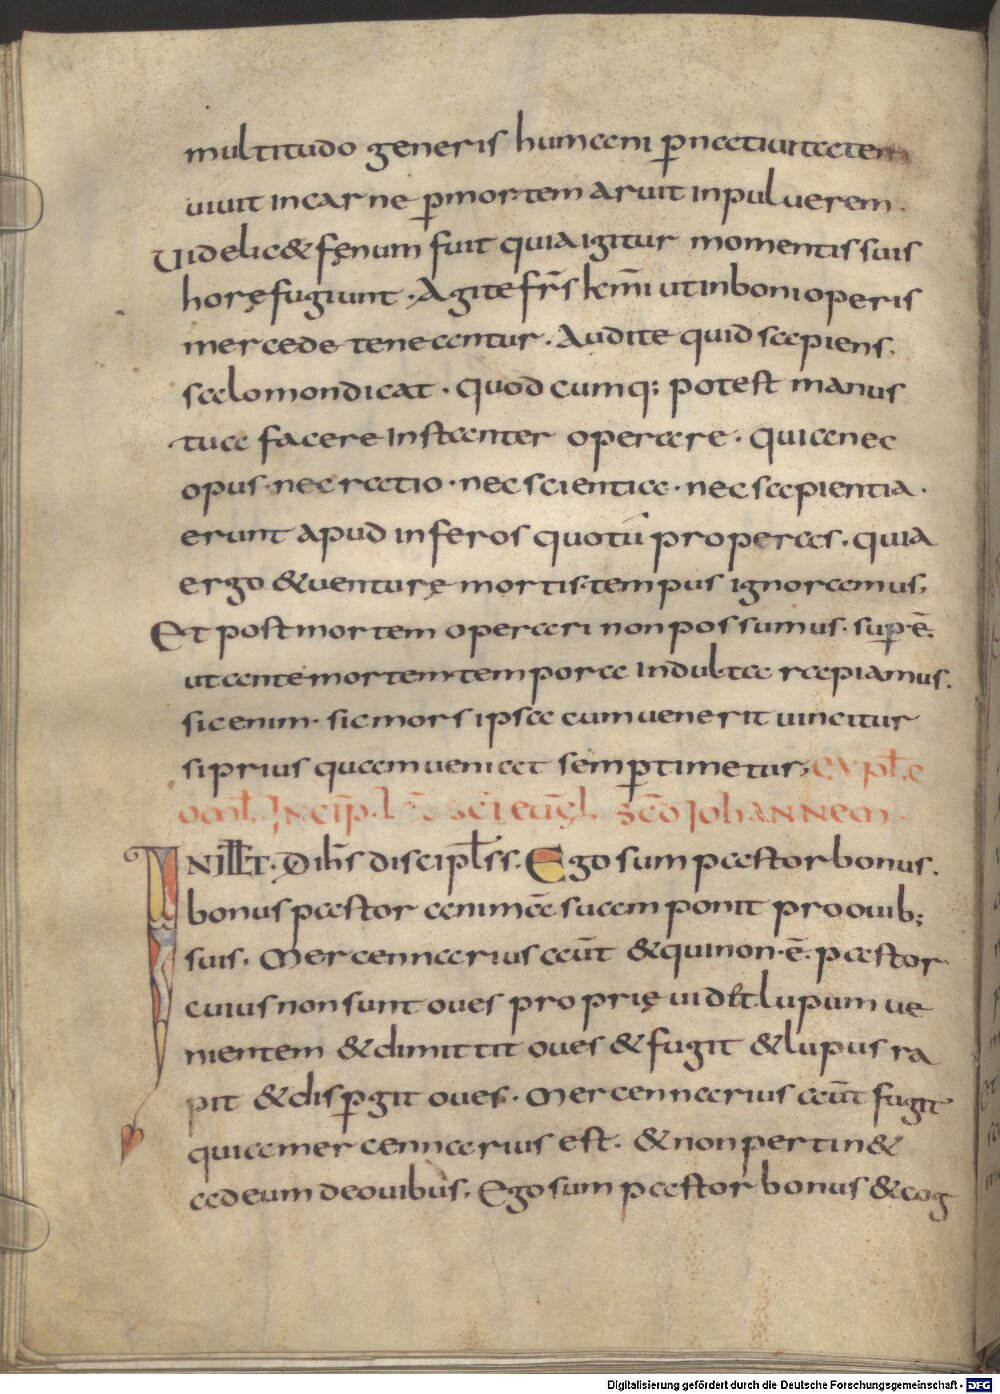 multitudo generis humani ꝑnatiuitatem
uiuit incarne ꝑmortem aruit inpuluerem.
Uidelic& fęnum fuit quia igitur momentis suis
horę fugiunt. Agite fr̄s km̄i utinboni operis
mercede teneantur. Audite quid sapiens.
salomon dicat. Quod cumq; potest manus
tua facere instanter operare. quia nec
opus. nec ratio. nec scientia. nec sapientia.
erunt apud inferos quo tu properas. quia
ergo &uenturę mortis tempus ignoramus,
Et post mortem operari non possumus. suꝑ ē.
ut ante mortem tempora indulta rapiamus.
sic enim. sic mors ipsa cum uenerit uincitur
si prius quam ueniat semꝑ timetur; expl̄ e
oml̄. Incip̄. sc̄i euḡl sc̄do Iohannem.
IN ILL T. D ih̄s discipl̄ s s. Ego sum pastor bonus.
bonus pastor animā suam ponit pro ouib;
suis. Mercennarius aūt & qui non. ē. pastor
cuius non sunt oues proprię uid&̄ lupum ue
nientem & dimittit oues & fugit & lupus ra
pit & disꝑgit oues. Mercennarius aūt fugit
quia mercennarius est. & non pertin&
ad eum de ouibus. Ego sum pastor bonus & cog
Digitalisierung gefördert durch die Deutsche Forschungsgemeinschaft - DFG